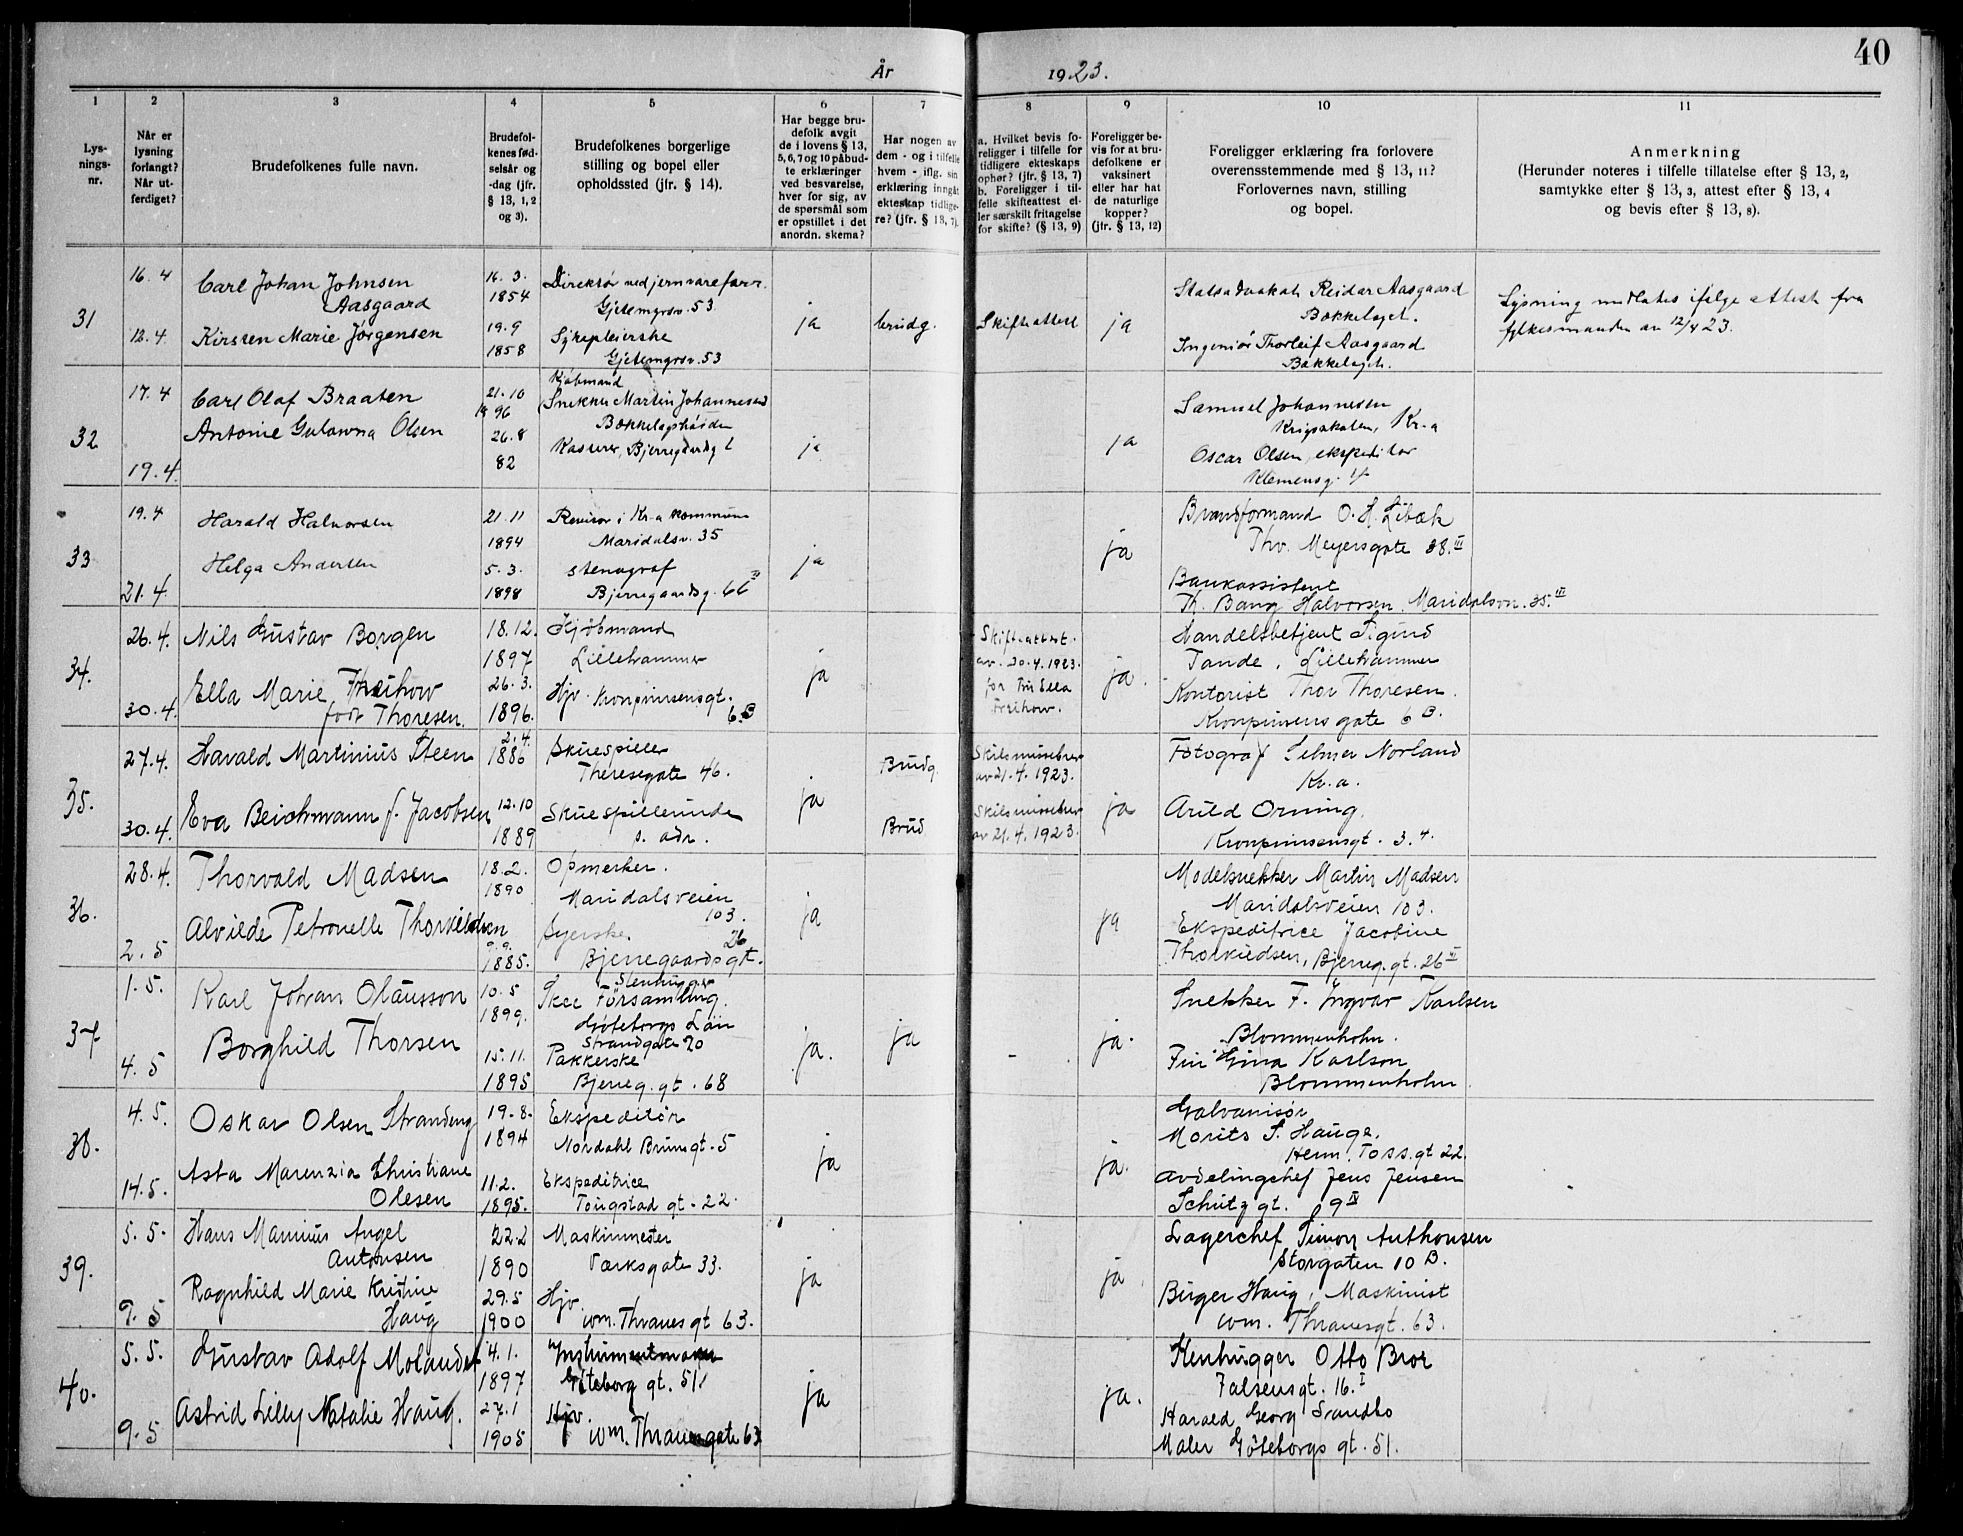 40
År 1923.
1 2 3 4 5 6 7 8 9 10 11
Lys-
nings-
nr.
Når er
lysning
forlangt?
Når ut-
ferdiget?
Brudefolkenes fulle navn.
Brudefol-
kenes fød-
selsår og
-dag (jfr.
§ 13, 1, 2
og 3).
Brudefolkenes borgerlige
stilling og bopel eller
opholdssted (jfr. § 14).
Har begge bru-
defolk avgit
de i lovens § 13,
5, 6, 7 og 10 påbud-
te erklæringer
ved besvarelse,
hver for sig, av
de spørsmål som
er opstillet i det
anordn. skema?
Har nogen av
dem - og i tilfelle
hvem - iflg. sin
erklæring inngåt
ekteskap tidlige-
re? (jfr. § 13, 7).
a. Hvilket bevis fo-
religger i tilfelle for
tidligere ekteskaps
ophør? (jfr. § 13, 7)
b. Foreligger i til-
felle skifteattest el-
ler særskilt fritagelse
for skifte? (§ 13, 9)
Foreligger be-
vis for at bru-
defolkene er
vaksinert
eller har hat
de naturlige
kopper?
(jfr. § 13, 12)
Foreligger erklæring fra forlovere
overensstemmende med § 13, 11?
Forlovernes navn, stilling
og bopel.
Anmerkning
(Herunder noteres i tilfelle tillatelse efter § 13, 2,
samtykke efter § 13, 3, attest efter § 13, 4
og bevis efter § 13, 8).
31
16. 4
12. 4.
Carl Johan Johnsen
Aasgaard
Kirsten Marie Jørgensen
16. 3.
1854
19. 9
1858
Direktør ved jernvareforr.
Gjetemyrsv. 53
Sykepleierske
Gjetemyrsv. 53
ja
brudg.
Skifteattest
ja
Statsadvokat Reidar Aasgaard
Bækkelaget.
Ingeniør Thorleif Aasgaard
Bækkelaget.
Lysning meddeles ifølge attest fra
fylkesmanden av 12/4 23.
32
17. 4
19. 4.
Carl Olaf Braaten
Antonie Gulowna Olsen
21. 10
1896
26. 8
82
Kjøbmand
Snekker Martin Johannesen
Bækkelagshøiden
Kasserer, Bjerregårdsg
ja
ja
Samuel Johannesen
Krigsskolen, Kr.a
Oscar Olsen, ekspeditør
Klemensg.
33
19. 4
21. 4.
Harald Halvorsen
Helga Andersen
21. 11
1894
5. 3.
1898
Revisor i Kr.a kommune
Maridalsv. 35
stenograf
Bjerregaardsg. 66
ja
ja
Brandformand O. H. Libæk
Thv. Meyersgate 38. III
Bankassistent
Th. Bang Halvorsen, Maridalsvn. 35. III
34.
26. 4.
30. 4.
Nils Gustav Borgen
Ella Marie Freihow
født Thoresen.
18. 12.
1897
26. 3.
1896.
Kjøbmand
Lillehammer
Hjv. Kronprinsensgt.
6. B
ja
Skifteattest
av. 20. 4. 1923.
for Fru Ella
Freihow.
ja.
Handelsbetjent Sigurd
Tande, Lillehammer
Kontorist Thor Thoresen.
Kronprinsens gate 6 B.
35.
27. 4.
30. 4.
Harald Martinius Steen
Eva Beichmann f. Jacobsen
2. 4.
1886
12. 10
1889
Skuespiller
Theresegate 46.
Skuespillerinde
s. adr.
ja
Brudg.
Brud
Skilsmissebev
av 21. 4. 1923.
Skilsmissebev
av 21. 4. 1923.
ja
Fotograf Selmer Norland
Kr.a.
Arild Orning.
Kronprinsensgt. 3. 4.
36.
28. 4.
2. 5
Thorvald Madsen
Alvilde Petronelle Thorkildsen
18. 2.
1890
9. 9.
1885.
Opmerker.
Maridalsveien
103.
Syerske. 26
Bjerregaardsgt.
ja
ja
Modelsnekker Martin Madsen
Maridalsveien 103.
Ekspeditrice Jacobine
Thorkildsen, Bjerreg. gt. 26
37
1. 5.
4. 5
Karl Johan Olausson
Borghild Thorsen
10. 5
1899.
15. 11.
1895
Stenhugger
Skee Församling.
Gøteborgs Län
Strandgate 20
Pakkerske
Bjerreg. gt. 68
ja.
ja
-
ja.
Snekker F. Ingvar Karlsen
Blommenholm.
Fru Gina Karlson
Blommenholm
38.
4. 5.
14. 5.
Oskar Olsen Strandeng
Asta Marenzia Christiane
Olesen
19. 8.
1894
11. 2.
1895.
Ekspeditør
Nordahl Brunsgt. 5
Ekspeditrice
Tougstad gt. 22.
ja
ja.
Galvanisør
Morits S. Hauge.
Herm. Foss. gt 22.
Avdelingschef Jens Jensen
Schutz gt. 9 IV
39.
5. 5.
9. 5
Hans Marinius Angel
Antonsen
Ragnhild Marie Kristine
Haug
22. 2
1890
29. 5
1900
Maskinmester
Værksgate 33.
Hjv.
Wm. Thranesgt 63.
ja
ja
Lagerchef Simon Anthonsen
Storgaten 10 B.
Birger Haug, Maskinist
Wm. Thranesgt. 63.
40.
5. 5.
9. 5
Gustav Adolf Molander
Astrid Lilly Natalie Haug.
4. 1.
1897
27. 1
1905
Instrumentmaker
Göteborg gt. 51.
Hjv.
Wm. Thranesgate 63
ja
ja.
Stenhugger Otto Bror
Falsensgt. 16. I
Harald Georg Srandbo
Maler Göteborgs gt. 51.